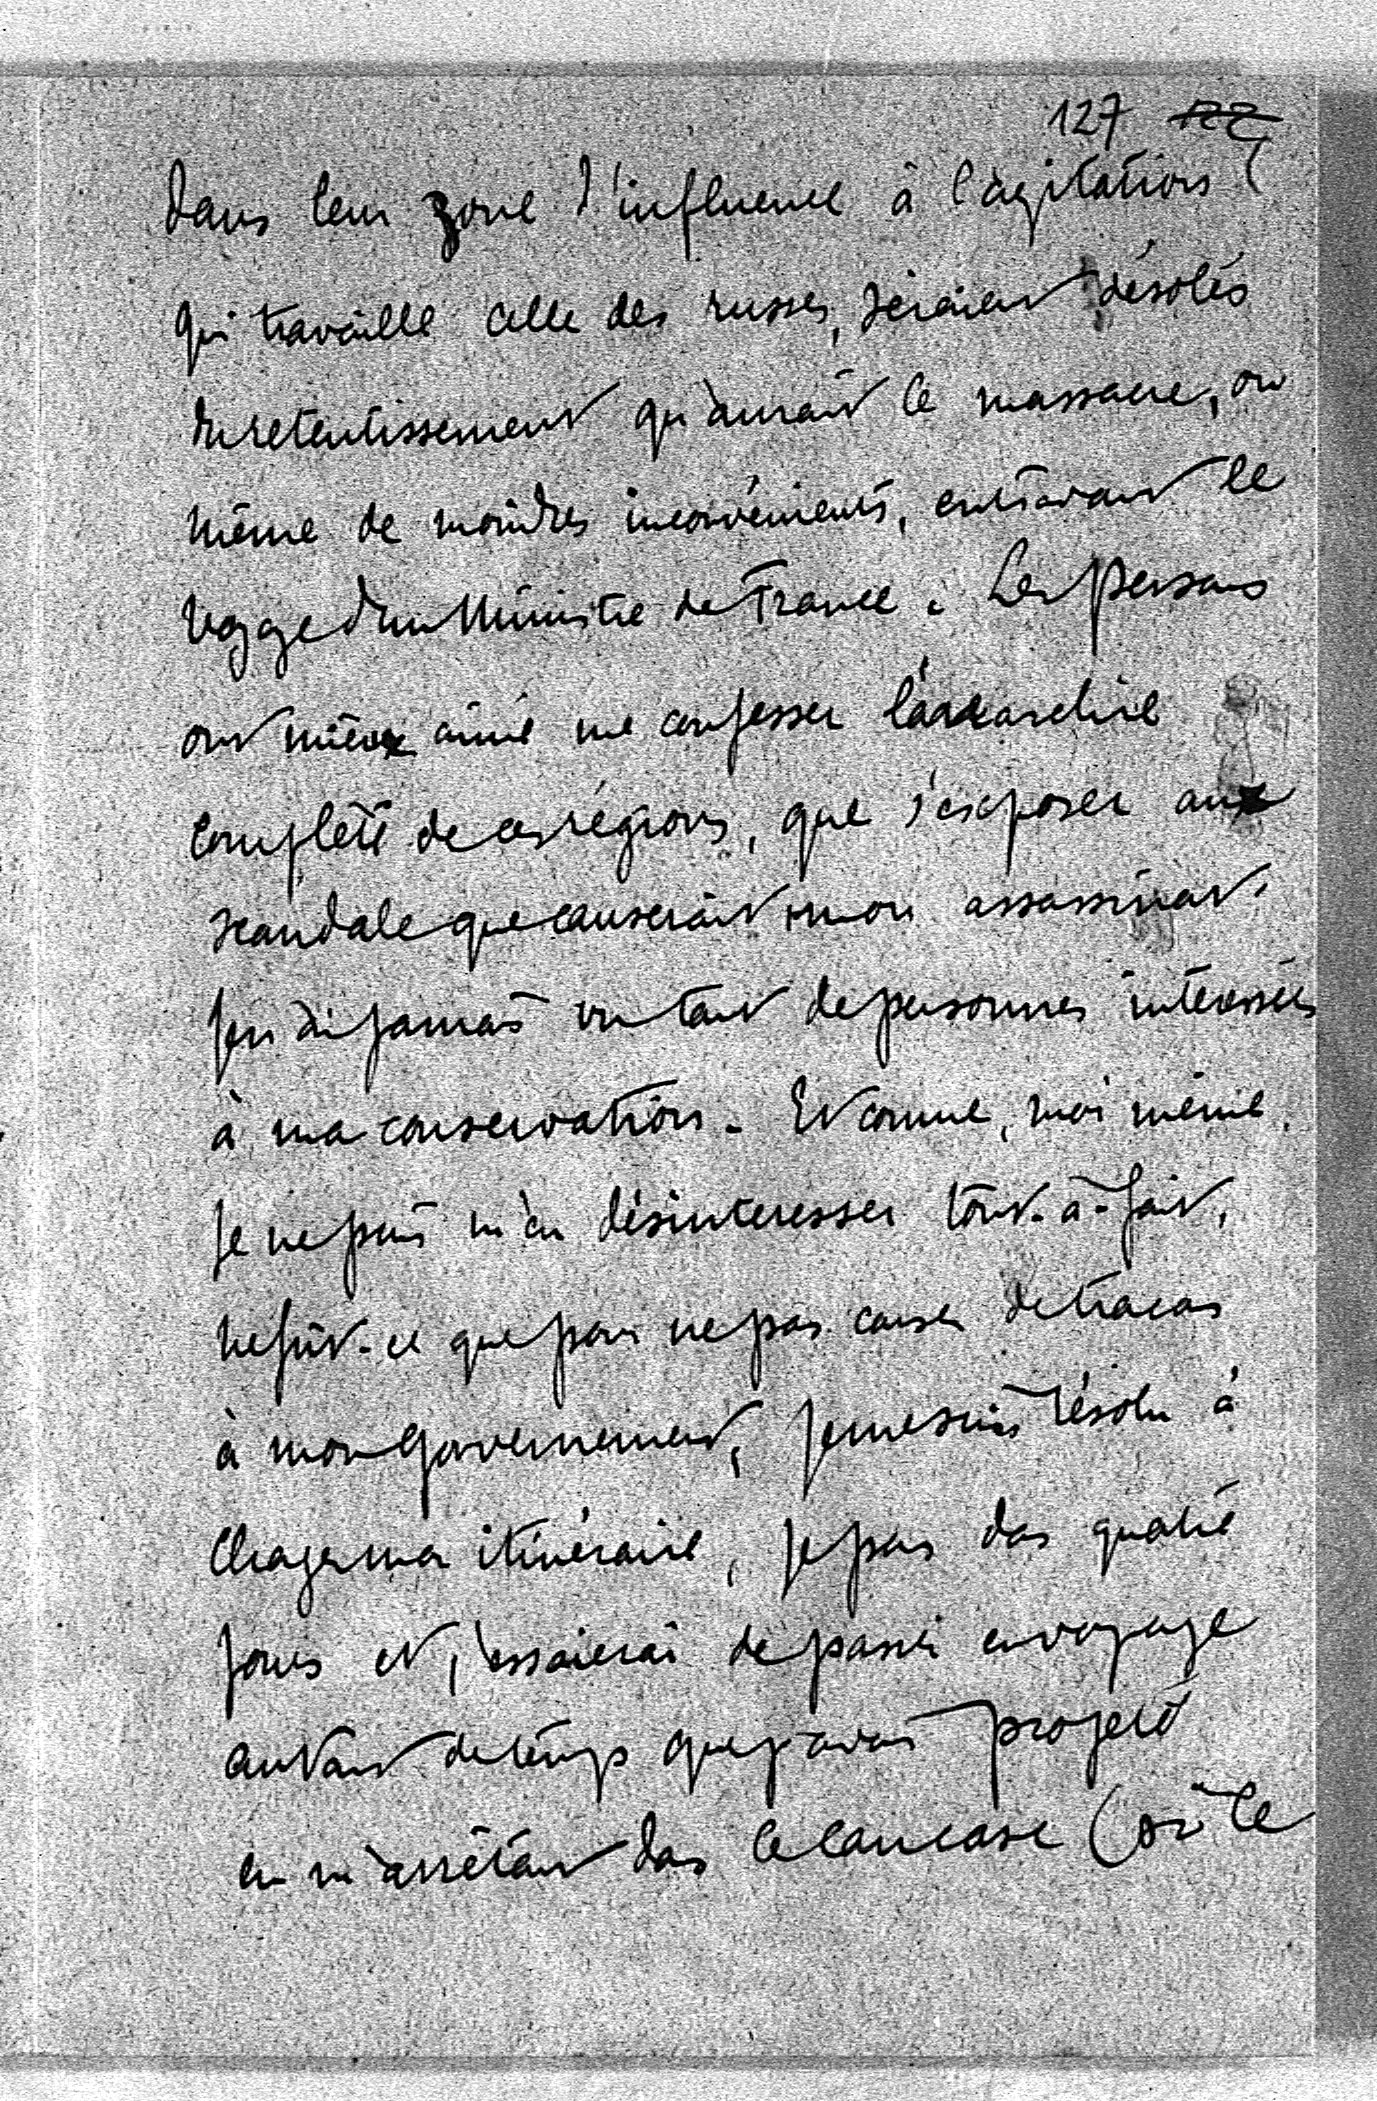 127 122
dans leur zone d'influence à l'agitation
qui travaille celle des russes, seraient désolés
du retentissement qu'aurait le massacre, ou
même de moindres inconvénients, entravant le
voyage d'un Ministre de France. Les persans
ont mieux aimé me confesser l'anarchie
complète de ces régions, que s'exposer au
scandale que causerait mon assassinat.
Je n'ai jamais vu tant de personnes intéressées
à ma conservation. Et comme, moi même,
je ne puis m'en désintéresser tout-à-fait,
ne fût-ce que pour ne pas causer de tracas
à mon gouvernement, je me suis résolu à
changer mon itinéraire, je pars dans quatre
jours et j'essaierai de passer en voyage
autant de temps que j'avais projeté
en m'arrêtant dans le Caucase (où le